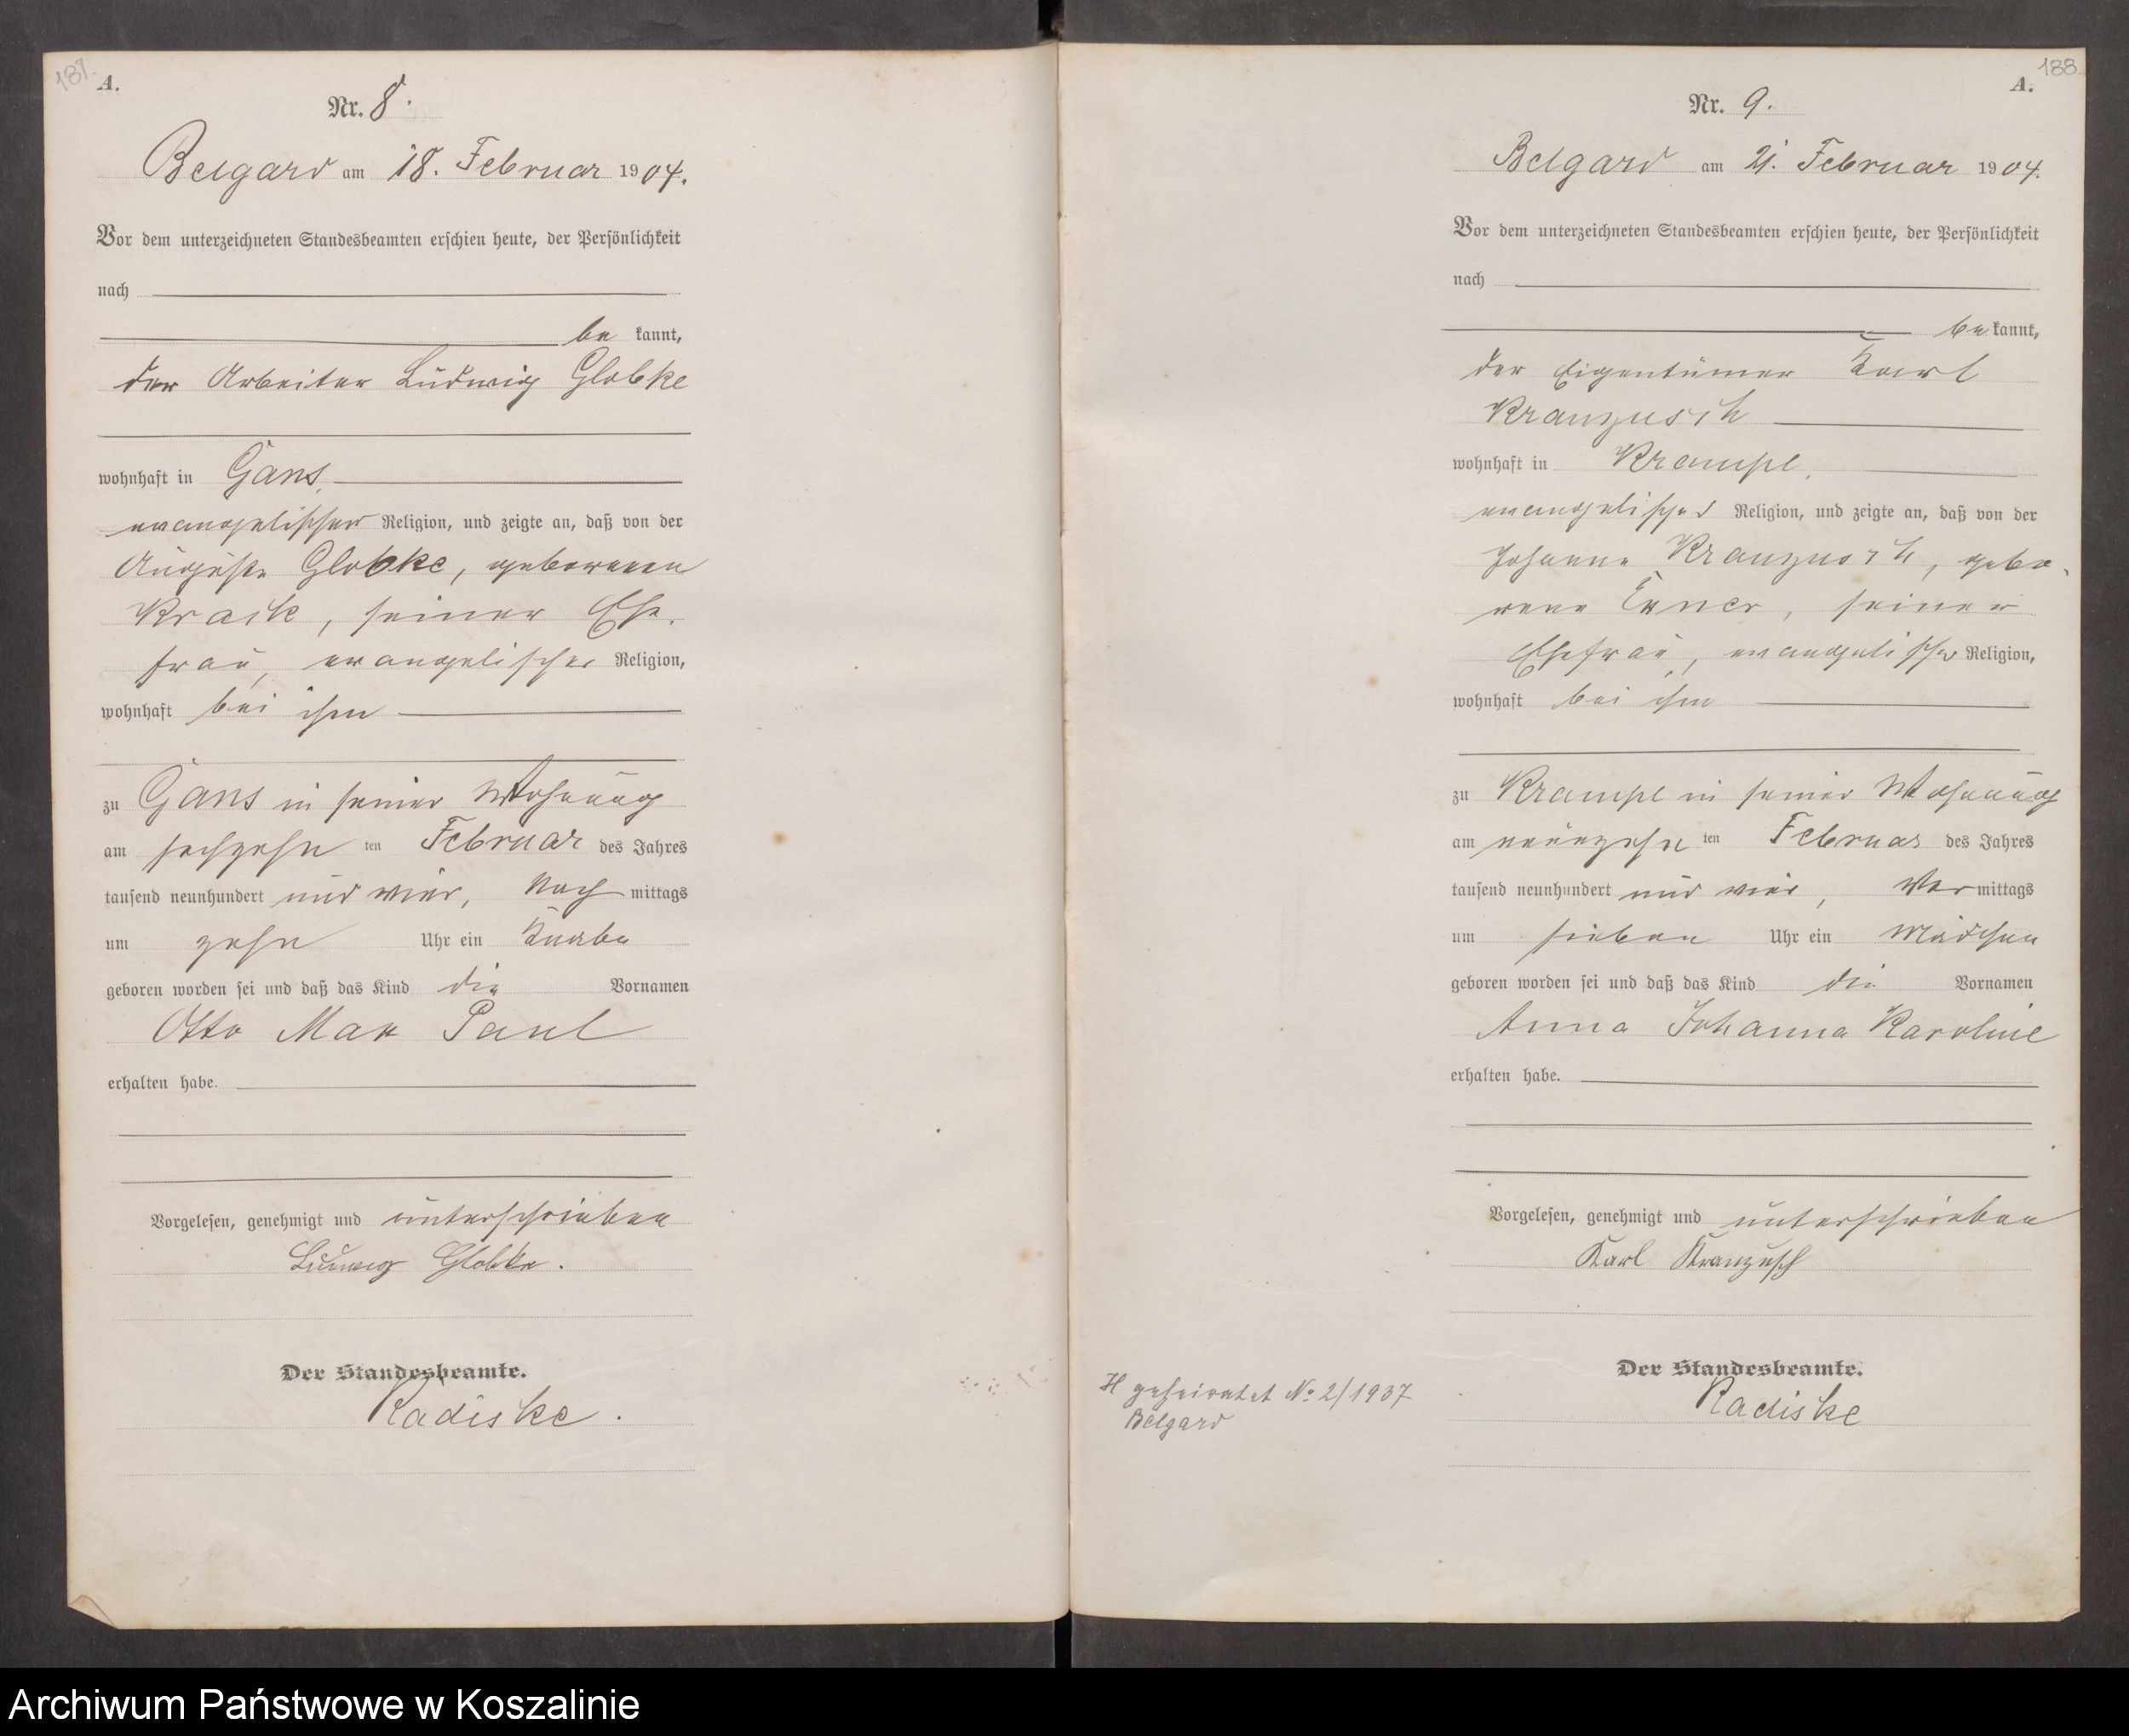 187.
A.
Nr. 8.
Belgard am 18. Februar 1904.
Vor dem unterzeichneten Standesbeamten erschien heute, der Persönlichkeit
nach
be kannt,
der Arbeiter Ludwig Globke
wohnhaft in Gans,
evangelischer Religion, und zeigte an, daß von der
Auguste Globke, geborenen
Krack, seiner Ehe-
frau, evangelischer Religion,
wohnhaft bei ihm
zu Gans in seiner Wohnung
am sechzehn ten Februar des Jahres
tausend neunhundert und vier, Nach mittags
um zehn Uhr ein Knabe
geboren worden sei und daß das Kind die Vornamen
Otto Max Paul
erhalten habe.
Vorgelesen, genehmigt und unterschrieben
Ludwig Globke.
Der Standesbeamte.
Radiske.
188
A.
Nr. 9.
Belgard am 21. Februar 1904.
Vor dem unterzeichneten Standesbeamten erschien heute, der Persönlichkeit
nach
be kannt,
der Eigentümer Karl
Kranzusch
wohnhaft in Krampe,
evangelischer Religion, und zeigte an, daß von der
Johanne Kranzusch, gebo-
rene, seiner
Ehefrau, evangelischer Religion,
wohnhaft bei ihm
zu Krampe in seiner Wohnung
am neunzehn ten Februar des Jahres
tausend neunhundert und vier, Vor mittags
um sieben Uhr ein Mädchen
geboren worden sei und daß das Kind die Vornamen
Anna Johanna Karoline
erhalten habe.
Vorgelesen, genehmigt und unterschrieben
Karl Kranzusch
H geheiratet No 2/1937
Belgard
Der Standesbeamte.
Radiske
Archiwum Państwowe w Koszalinie